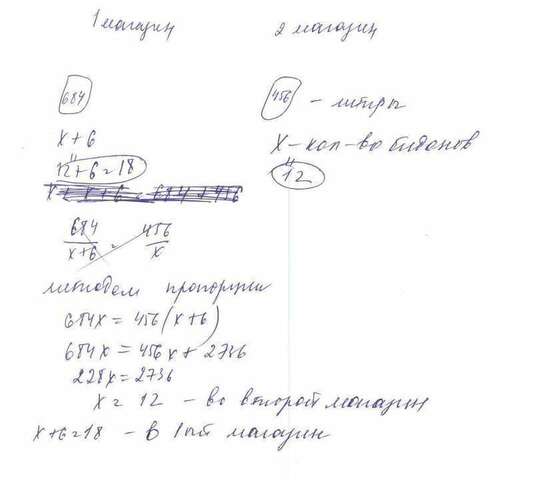 1 магазин 2 магазин
684 456 - литры
x+6 x - кол-во бидонов
12+6=18 12
x + x + 6 = 684 + 456
684/x+6 = 456/x
методом пропорции
684x = 456(x+6)
684x = 456x + 2736
228x = 2736
x = 12 - во второй магазин
x+6=18 - в 1ый магазин